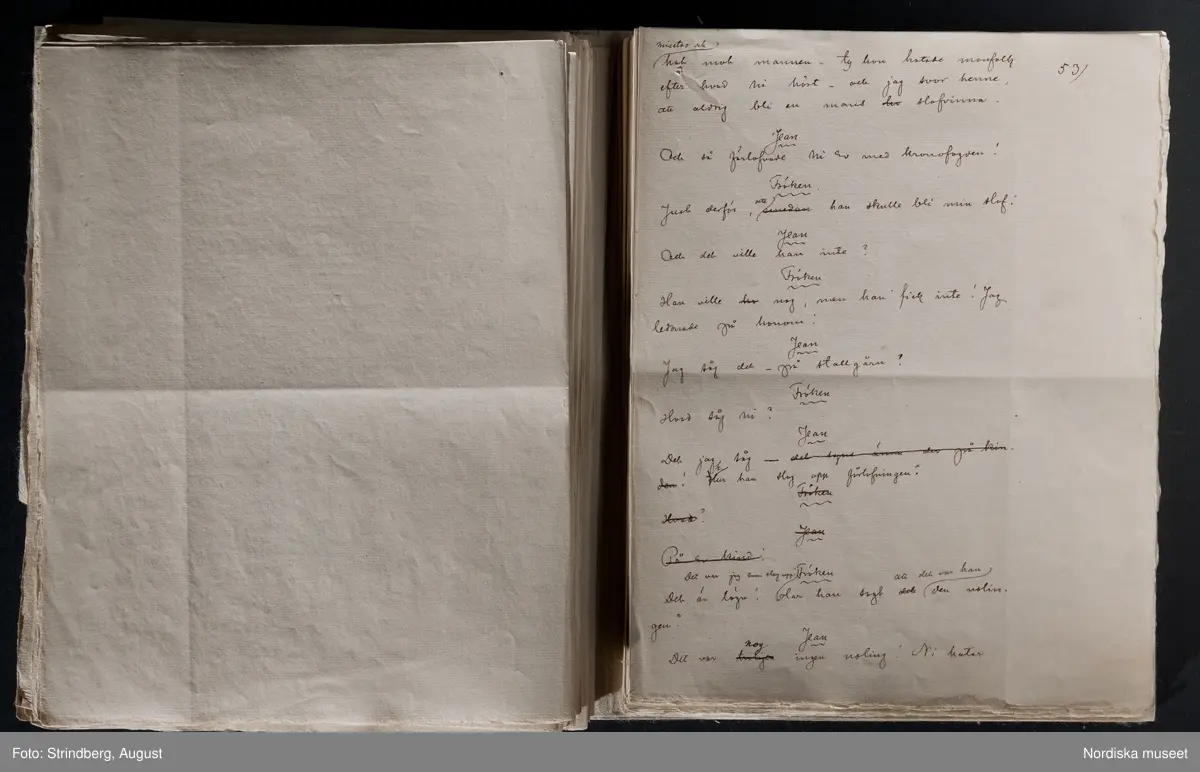 misstro och
hat mot mannen – ty hon hatade manfolk
53/
efter hvad Ni hört – och jag svor henne,
att aldrig bli en mans slafvinna.
Jean
Och så förlofvade Ni Er med kronofogden!
Fröken.
Just derför, att han skulle bli min slaf!
Jean
Och det ville han inte?
Fröken
Han ville nog, men han fick inte! Jag
ledsnade på honom!
Jean
Jag såg det – på stallgårn?
Fröken
Hvad såg Ni?
Jean
Det jag såg – det syns ännu der på kin-
den! Hur han slog opp förlofningen!
Fröken
Hvad?
Jean
På Er kind!
Det var jag som slog opp! Fröken
att det var han
Det är lögn! Har han sagt det den usling-
gen?
Jean
nog
Det var ingen usling! Ni hatar
Foto: Strindberg, August
Nordiska museet